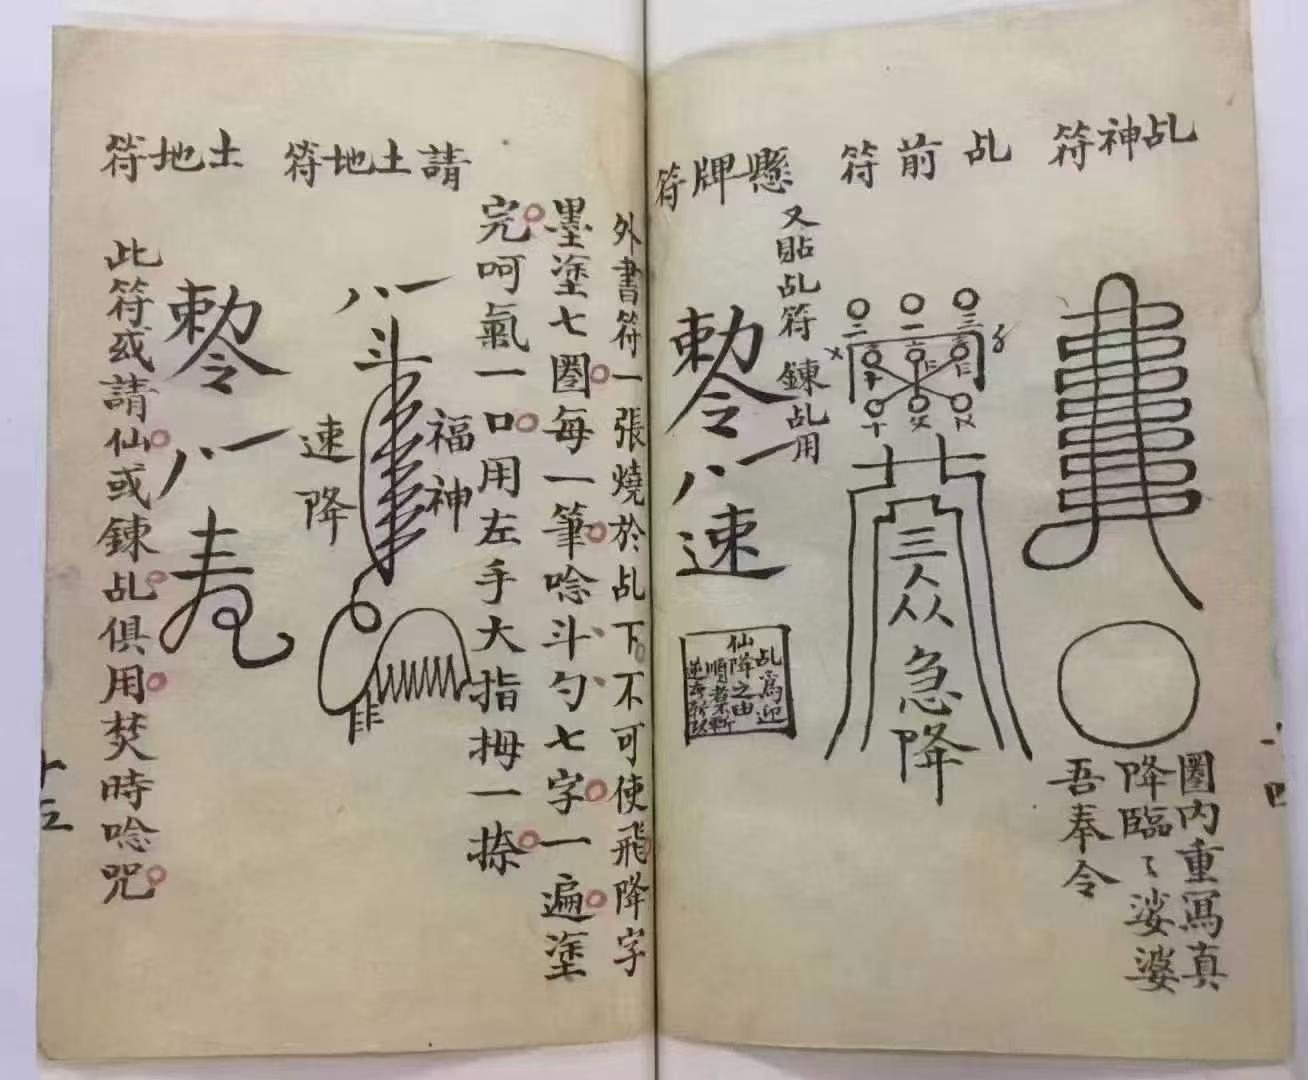 乩神符
圈内重寫真
降臨〻娑婆
吾奉令
乩前符
三 一 二
三人从急降
懸牌符
又貼乩符 鍊乩用
敕令八一速
乩爲迎
仙降之由
外書符一張燒於乩下不可使飛降字
墨塗七圈每一筆唸斗勺七字一遍塗
完呵氣一口用左手大指拇一捺
請土地符
八一斗
福神
速降
土地符
敕令八一
此符或請仙或鍊乩俱用焚時唸咒